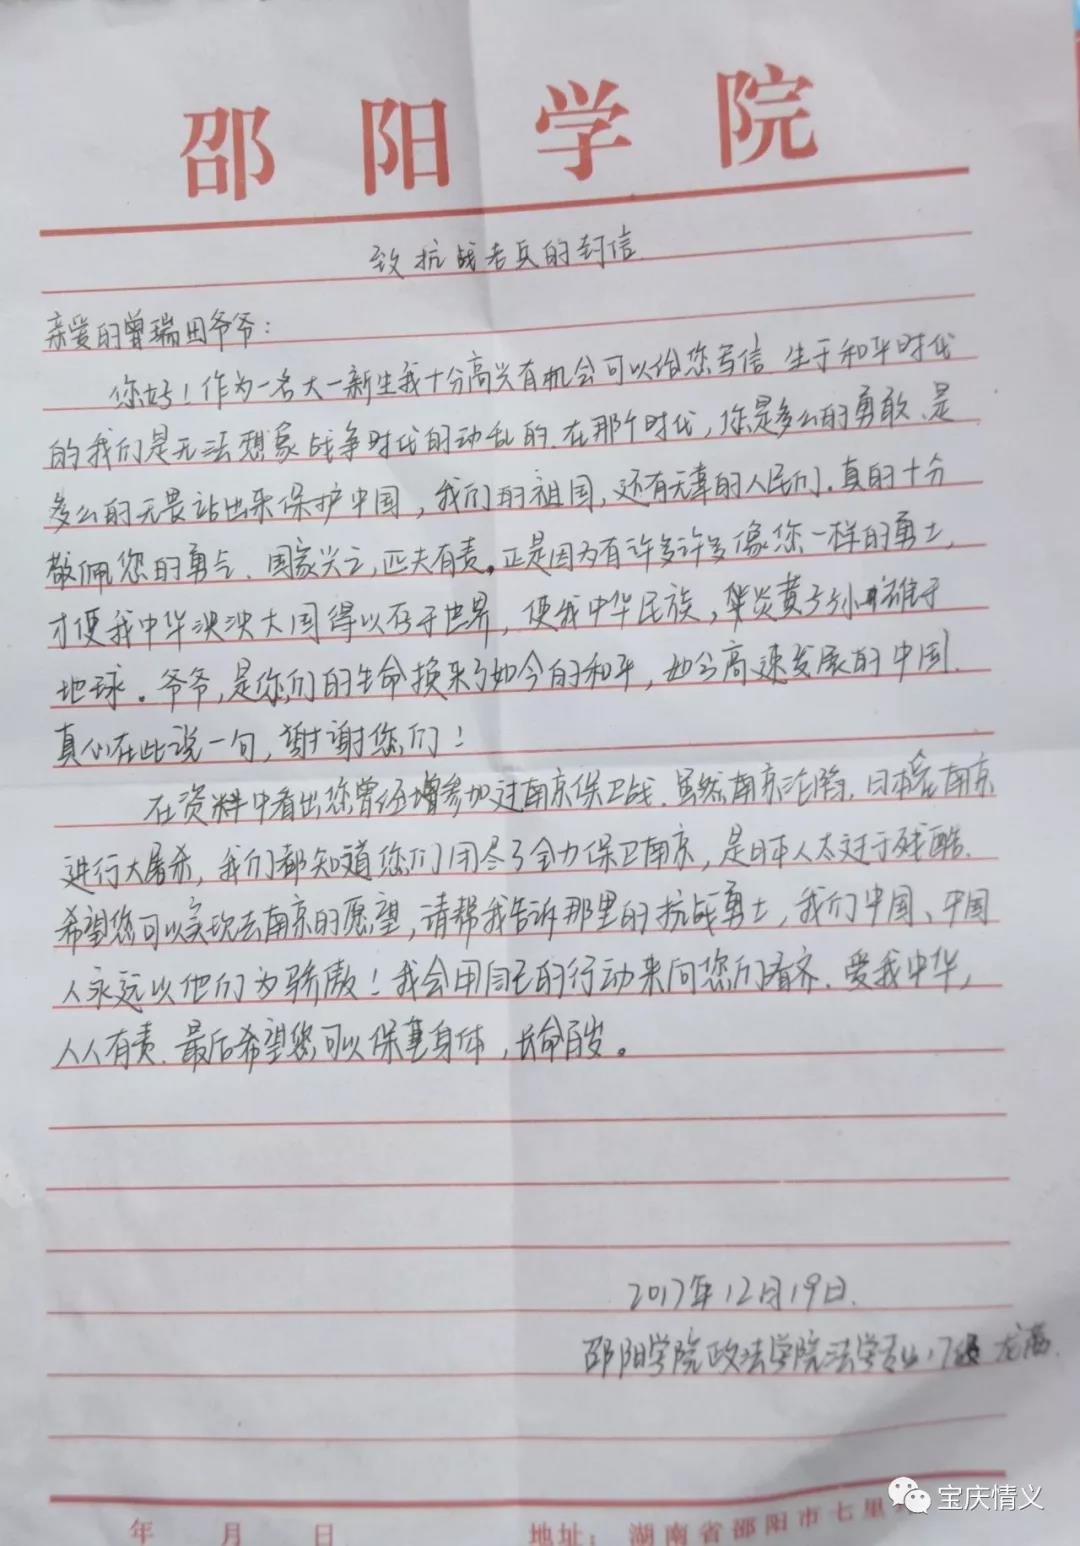 邵阳学院
致抗战老兵的封信
亲爱的曾瑞田爷爷：
您好！作为一名大一新生我十分高兴有机会可以给您写信.生于和平时代
的我们是无法想象战争时代的动乱的.在那个时代，你是多么的勇敢、是
多么的无畏站出来保护中国，我们的祖国，还有无辜的人民们.真的十分
敬佩您的勇气、国家兴亡，匹夫有责。正是因为有许多许多像您一样的勇士，
才使我中华泱泱大国得以存于世界，使我中华民族，炎黄子孙雄于
地球。爷爷，是你们的生命换来了如今的和平，如今高速发展的中国.
真心在此说一句，谢谢您们！
在资料中看出您曾经参加过南京保卫战.虽然南京沦陷，日本在南京
进行大屠杀，我们都知道您们用尽了全力保卫南京，是日本人太过于残酷.
希望您可以实现去南京的愿望，请帮我告诉那里的抗战勇士，我们中国、中国
人永远以他们为骄傲！我会用自己的行动来向您们看齐.爱我中华，
人人有责.最后希望您可以保重身体，长命百岁。
2017年12月19日.
邵阳学院政法学院法学专业17级 龙
年 月 日 地址：湖南省邵阳市七里
宝庆情义